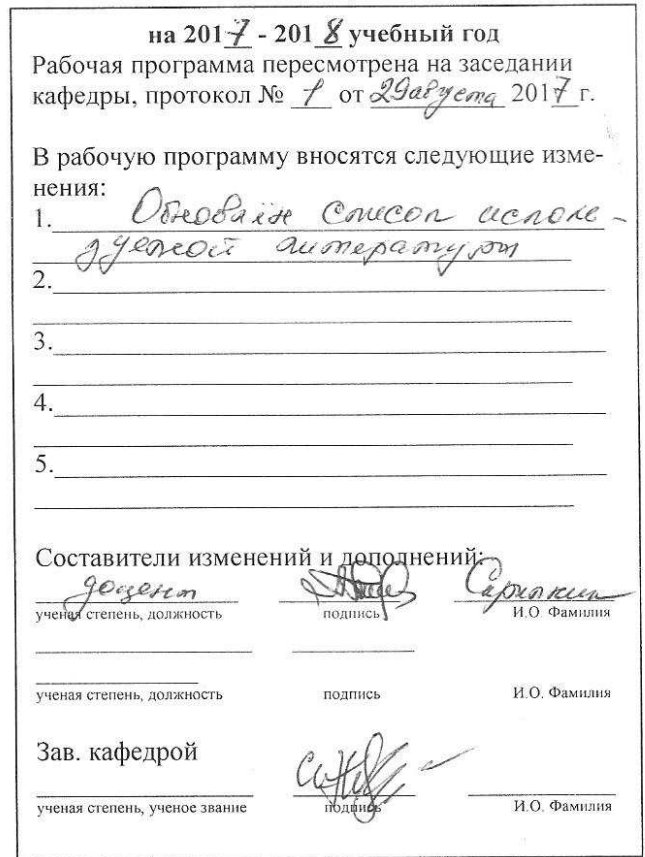 на 2017 - 2018 учебный год
Рабочая программа пересмотрена на заседании
кафедры, протокол № 1 от 29августа 2017 г.
В рабочую программу вносятся следующие изме-
нения:
1. Обновлён список исполь-
зуемой литературы
2.
3.
4.
5.
Составители изменений и дополнений:
доцент
ученая степень, должность подпись И.О. Фамилия
ученая степень, должность подпись И.О. Фамилия
Зав. кафедрой
ученая степень, ученое звание подпись И.О. Фамилия